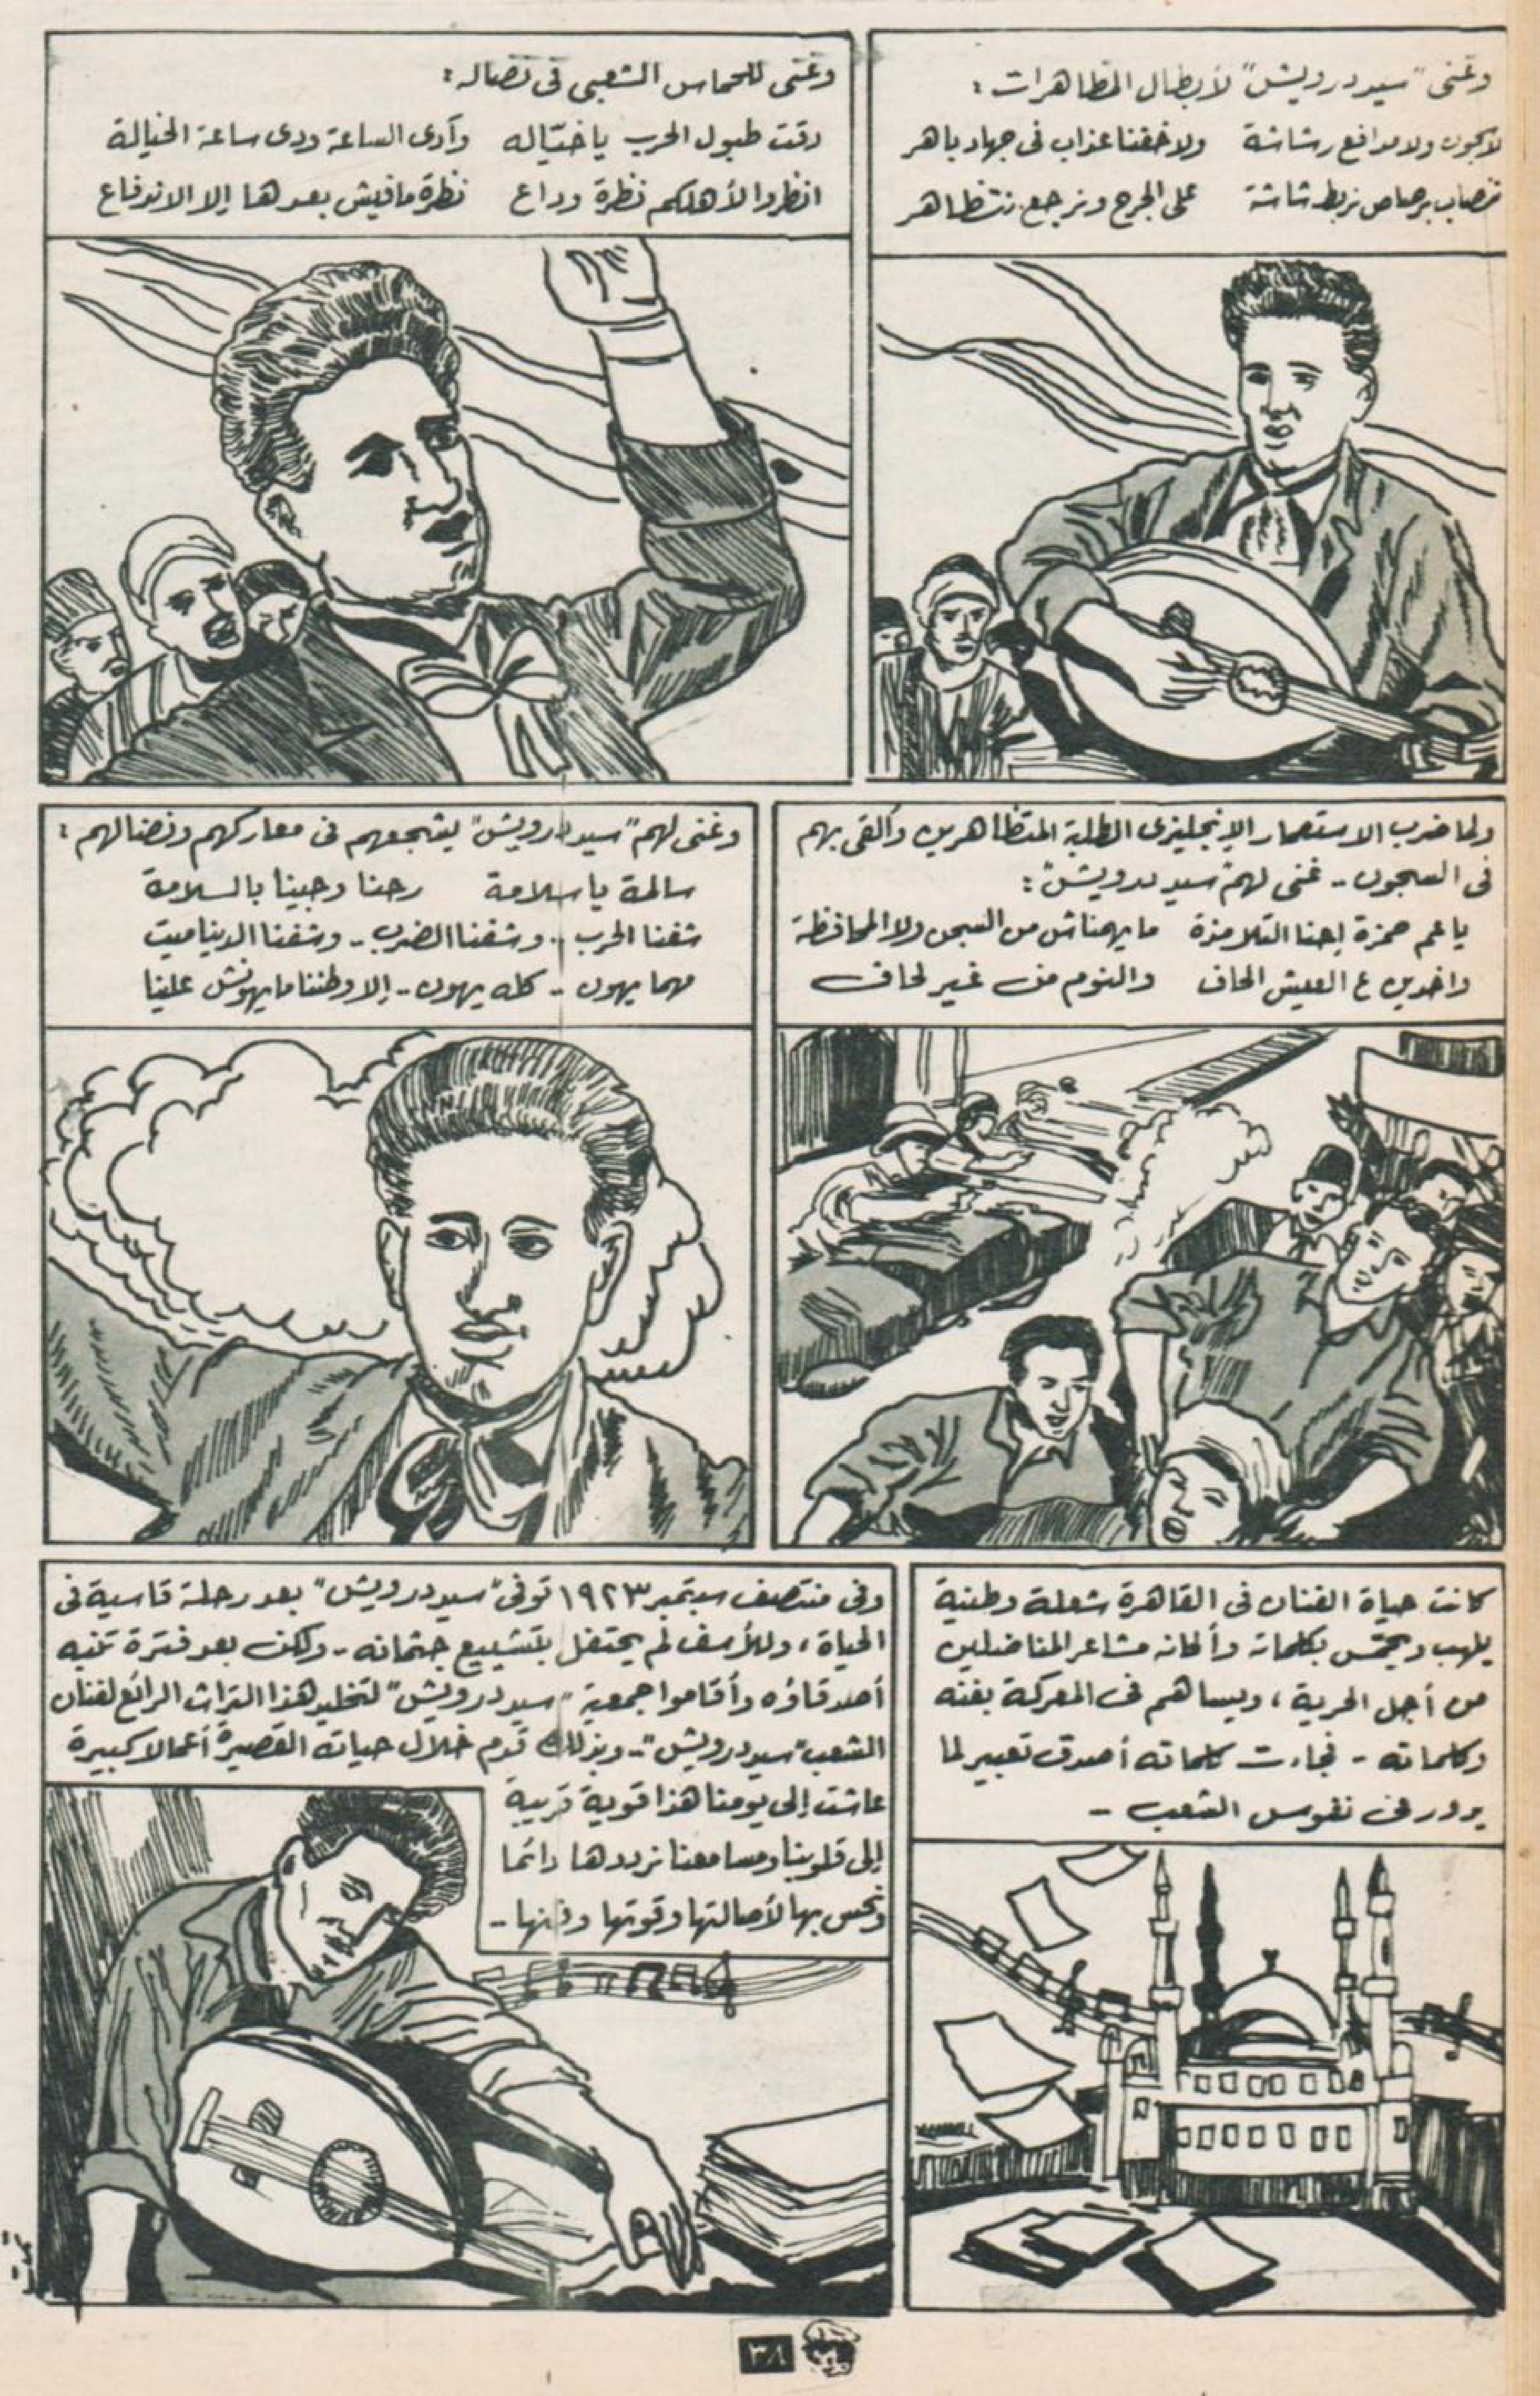 وغنى "سيد درويش" لأبطال المظاهرات :
لا سجون ولا مدافع رشاشة ولا خفنا عذاب فى جهاد باهر
نصاب برصاص نربط شاشة على الجرح ونرجع نتظاهر
وغنى للحماس الشعبى فى نضاله :
دقت طبول الحرب يا خيّاله وآدى الساعة ودى ساعة الخيالة
انظروا لأهلكم نظرة وداع نظرة مافيش بعدها إلا الاندفاع
ولما ضرب الاستعمار الإنجليزى الطلبة المتظاهرين وألقى بهم
فى السجون .. غنى لهم "سيد درويش" :
يا عم حمزة إحنا التلامذة ما يهمناش من السجن ولا المحافظة
واخدين ع العيش الحاف والنوم من غير لحاف
وغنى لهم "سيد درويش" يشجعهم فى معاركهم ونضالهم :
سالمة يا سلامة رحنا وجينا بالسلامة
شفنا الحرب .. وشفنا الضرب .. وشفنا الديناميت
مهما يهون .. كله يهون .. إلا وطننا ما يهونش علينا
كانت حياة الفنان فى القاهرة شعلة وطنية
يلهب ويحمّس بكلماته وألحانه مشاعر المناضلين
من أجل الحرية ، ويساهم فى المعركة بفنه
وكلماته .. فجاءت كلماته أصدق تعبير لما
يدور فى نفوس الشعب ..
وفى منتصف سبتمبر ١٩٢٣ توفى "سيد درويش" بعد رحلة قاسية فى
الحياة ، وللأسف لم يحتفل بتشييع جثمانه .. ولكن بعد فترة تنبه
أصدقاؤه وأقاموا جمعية "سيد درويش" لتخليد هذا التراث الرائع لفنان
الشعب "سيد درويش" .. وبذلك قدم خلال حياته القصيرة أعمالا كبيرة
عاشت إلى يومنا هذا قوية قريبة
إلى قلوبنا ومسامعنا نرددها دائما
ونحس بها لأصالتها وقوتها وفنها ..
٣٨